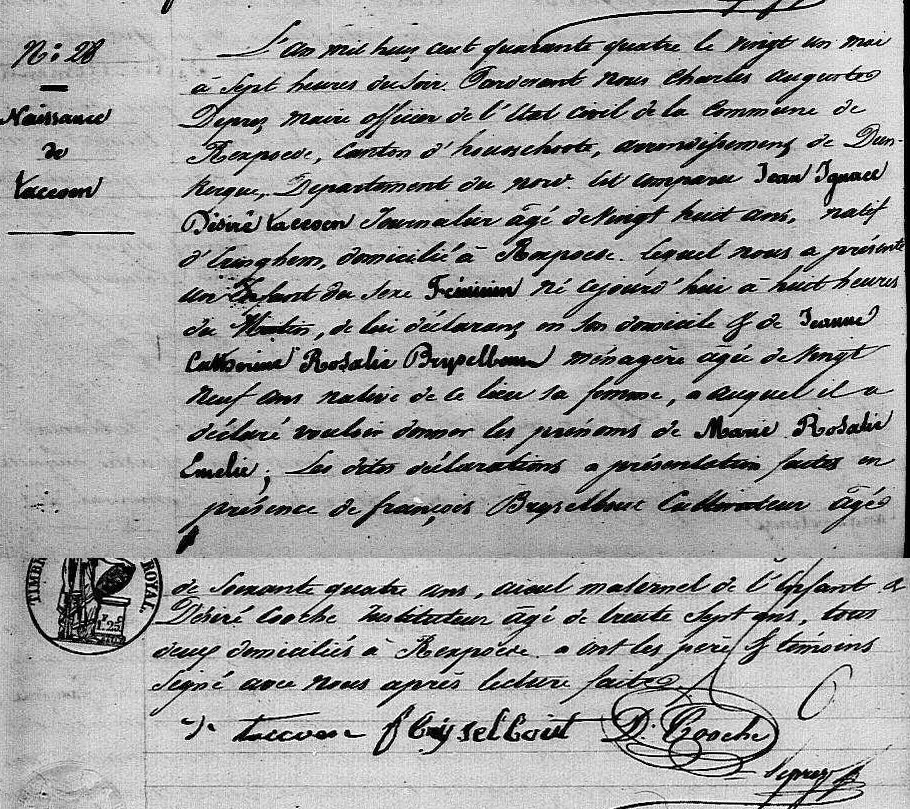 N.º 28
Naissance
de
Vaccoen
L'an mil huit cent quarante quatre le vingt un mai
à Sept heures du Soir. Pardevant nous Charles auguste
Deprez Maire officier de l'Etat Civil de la Commune de
Rexpoëde, Canton d'hondschoote, arrondissement de Dun-
kerque, Departement du nord. Est comparu Jean Ignace
Désiré Vaccoen Journalier âgé de Vingt huit ans, natif
d'Eringhem, domicilié à Rexpoëde. lequel nous a présenté
un Enfant du Sexe Féminin né cejourd'hui à huit heures
du Matin, de lui déclarant en son domicile & de Jeanne
Catherine Rosalie Bryselbout ménagère agée de Vingt
Neuf ans native de ce lieu sa femme, & auquel il a
déclaré vouloir donner les prénoms de Marie Rosalie
Emelie; Les dites déclarations & présentation faites en
présence de françois Bryselbout Cultivateur âgé
TIMBRE ROYAL.
1.25
de Soixante quatre ans, aieul maternel de l'Enfant &
Désiré Cooche Instituteur âgé de trente Sept ans, tous
deux domiciliés à Rexpoëde. & ont les père & témoins
Signé avec Nous après lecture faite
Vaccoen f Bryselbout D. Cooche
Deprez